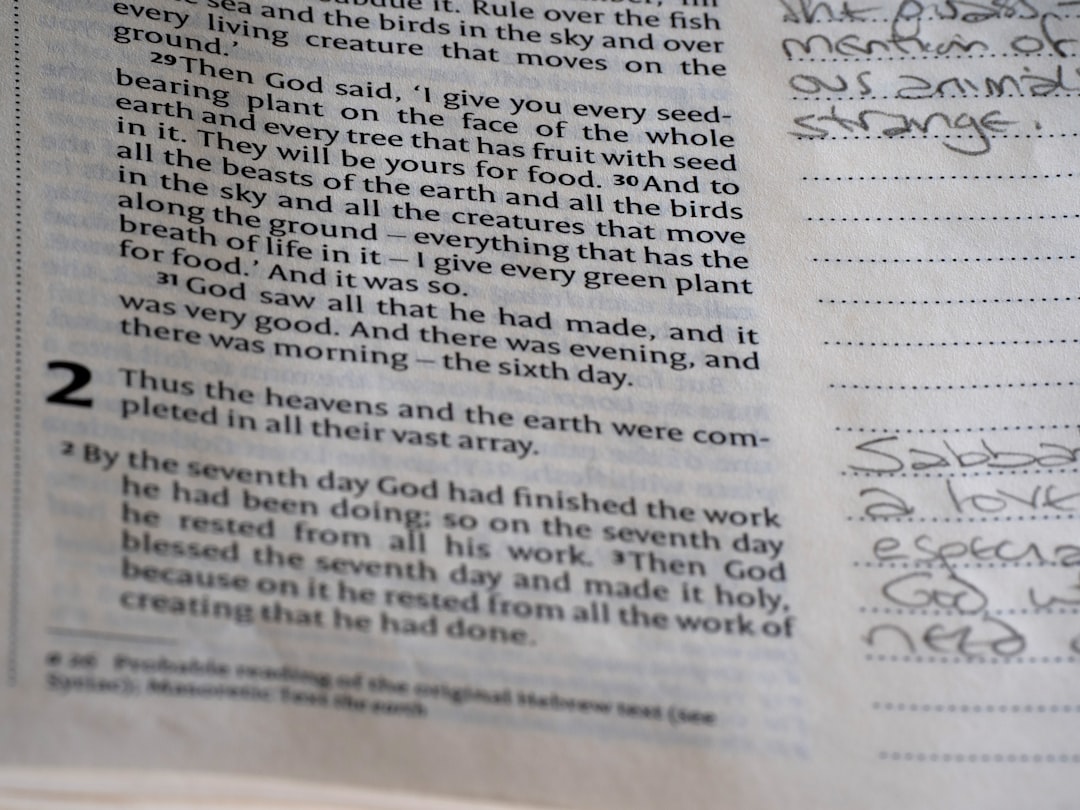 it. Rule over the fish
sea and the birds in the sky and over
every living creature that moves on the
ground.’
29 Then God said, ‘I give you every seed-
bearing plant on the face of the whole
earth and every tree that has fruit with seed
in it. They will be yours for food. 30 And to
all the beasts of the earth and all the birds
in the sky and all the creatures that move
along the ground – everything that has the
breath of life in it – I give every green plant
for food.’ And it was so.
31 God saw all that he had made, and it
was very good. And there was evening, and
there was morning – the sixth day.
2 Thus the heavens and the earth were com-
pleted in all their vast array.
2 By the seventh day God had finished the work
he had been doing; so on the seventh day
he rested from all his work. 3 Then God
blessed the seventh day and made it holy,
because on it he rested from all the work of
creating that he had done.
26 Probable reading of the original Hebrew text (see
Syriac); Masoretic Text the earth
mention of
ous animals
strange.
Sabba
a love
especia
God w
need